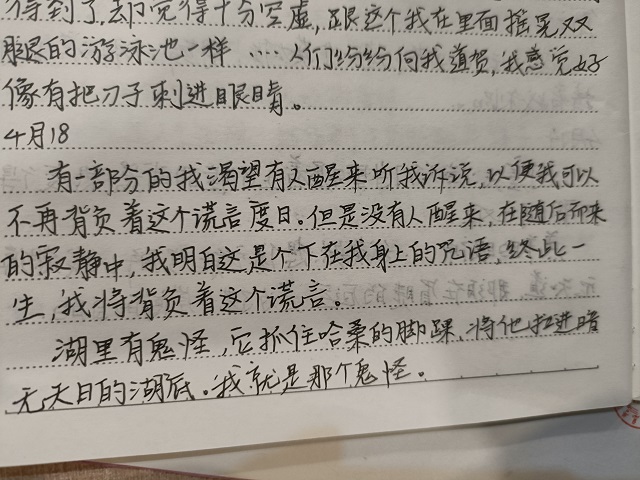 得到了,却觉得十分空虚,跟这个我在里面摇晃双
腿的游泳池一样 … 人们纷纷向我道贺,我感觉好
像有把刀子刺进眼睛。
4月18
有一部分的我渴望有人醒来听我诉说,以便我可以
不再背负着这个谎言度日。但是没有人醒来,在随后而来
的寂静中,我明白这是个下在我身上的咒语,终此一
生,我将背负着这个谎言。
湖里有鬼怪,它抓住哈桑的脚踝,将他拉进暗
无天日的湖底。我就是那个鬼怪。